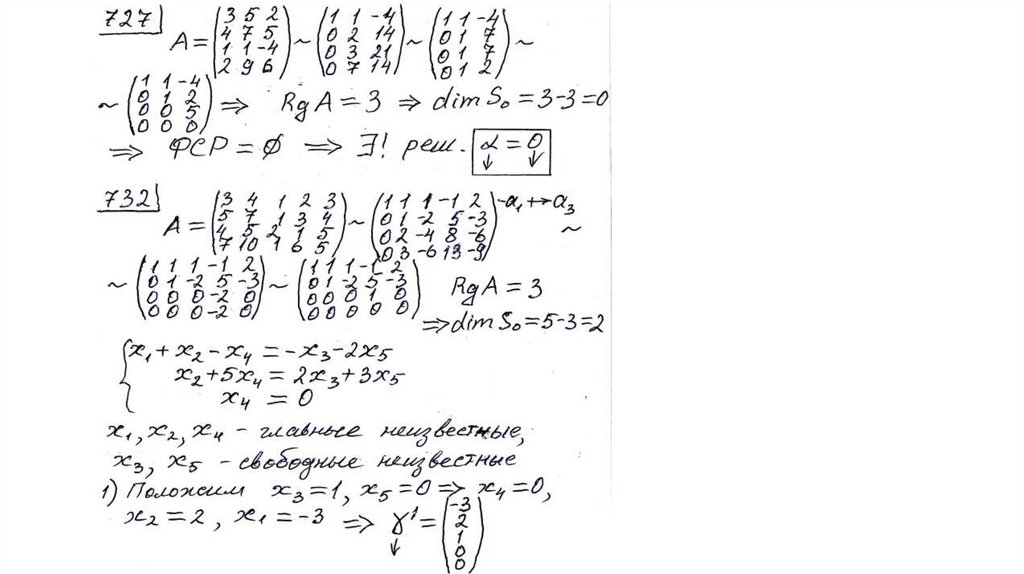 727
A = (3 5 2; 4 7 5; 1 1 -4; 2 9 6) ~ (1 1 -4; 0 2 14; 0 3 21; 0 7 14) ~ (1 1 -4; 0 1 7; 0 1 7; 0 1 2) ~
~ (1 1 -4; 0 1 2; 0 0 5; 0 0 0) ⇒ Rg A = 3 ⇒ dim S₀ = 3-3 = 0
⇒ ФСР = ∅ ⇒ ∃! реш. α = 0
732
A = (3 4 1 2 3; 5 7 1 3 4; 4 5 2 1 5; 7 10 1 6 5) ~ (1 1 1 -1 2; 0 1 -2 5 -3; 0 2 -4 8 -6; 0 3 -6 13 -9) -a₁ + → a₃ ~
~ (1 1 1 -1 2; 0 1 -2 5 -3; 0 0 0 -2 0; 0 0 0 -2 0) ~ (1 1 1 -1 2; 0 1 -2 5 -3; 0 0 0 1 0; 0 0 0 0 0) Rg A = 3
⇒ dim S₀ = 5-3 = 2
x₁ + x₂ - x₄ = -x₃ - 2x₅
x₂ + 5x₄ = 2x₃ + 3x₅
x₄ = 0
x₁, x₂, x₄ - главные неизвестные,
x₃, x₅ - свободные неизвестные
1) Положим x₃ = 1, x₅ = 0 ⇒ x₄ = 0,
x₂ = 2, x₁ = -3 ⇒ γ¹ = (-3; 2; 1; 0; 0)